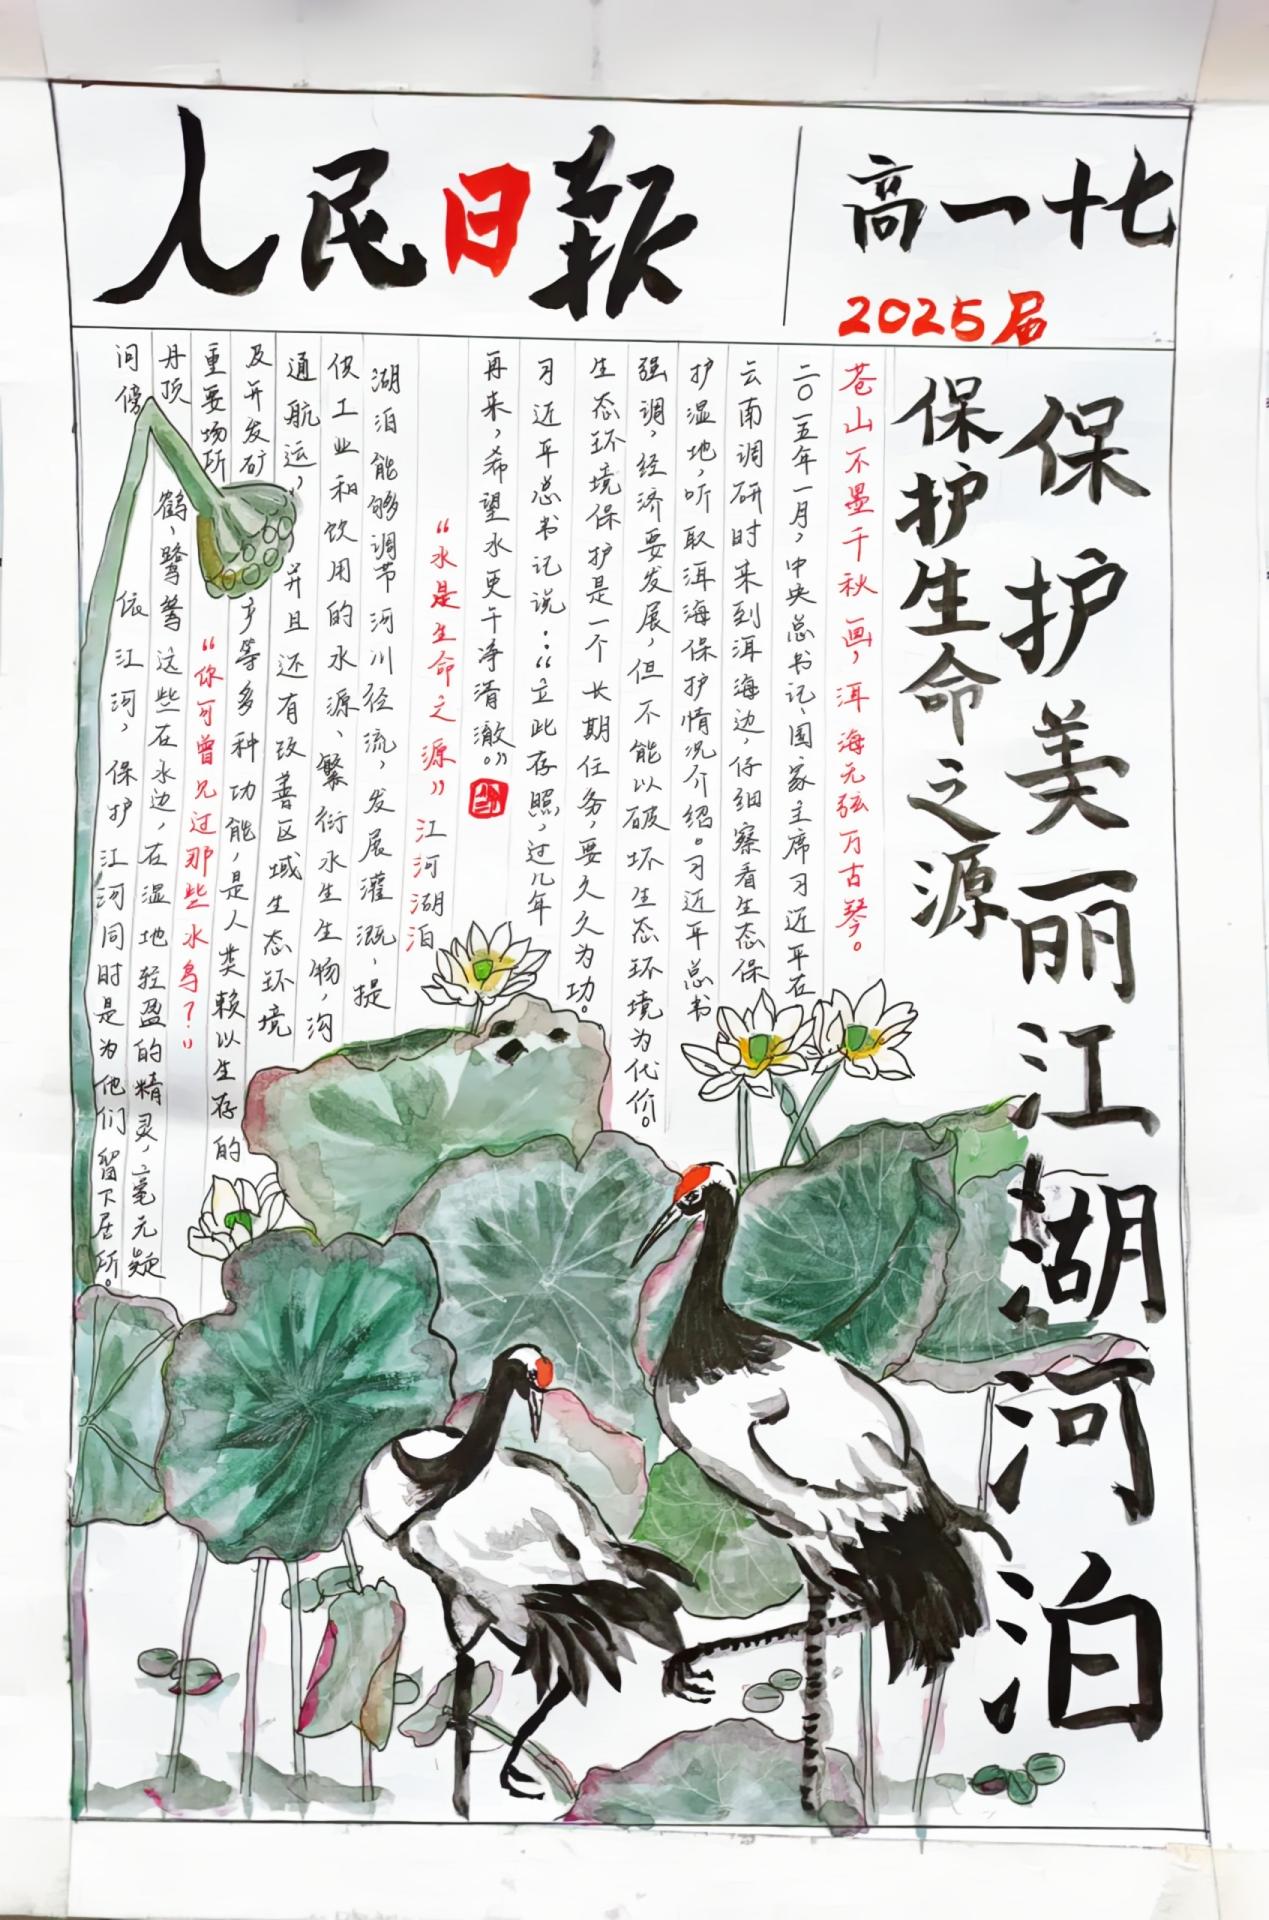 人民日报
高一十七
2025届
保护美丽江湖河泊
保护生命之源
苍山不墨千秋画，洱海无弦万古琴。
二〇一五年一月，中央总书记、国家主席习近平在
云南调研时来到洱海边，仔细察看生态保
护湿地，听取洱海保护情况介绍。习近平总书
强调，经济要发展，但不能以破坏生态环境为代价。
生态环境保护是一个长期任务，要久久为功。
习近平总书记说：“立此存照，过几年
再来，希望水更干净清澈。”
“水是生命之源”江河湖泊
湖泊能够调节河川径流，发展灌溉，提
供工业和饮用的水源、繁衍水生生物，沟
通航运，并且还有改善区域生态环境
及开发矿产等多种功能，是人类赖以生存的
重要场所
“你可曾见过那些水鸟？”
丹顶鹤，鹭鸶这些在水边，在湿地轻盈的精灵，毫无疑
问傍依江河，保护江河同时是为他们留下居所。